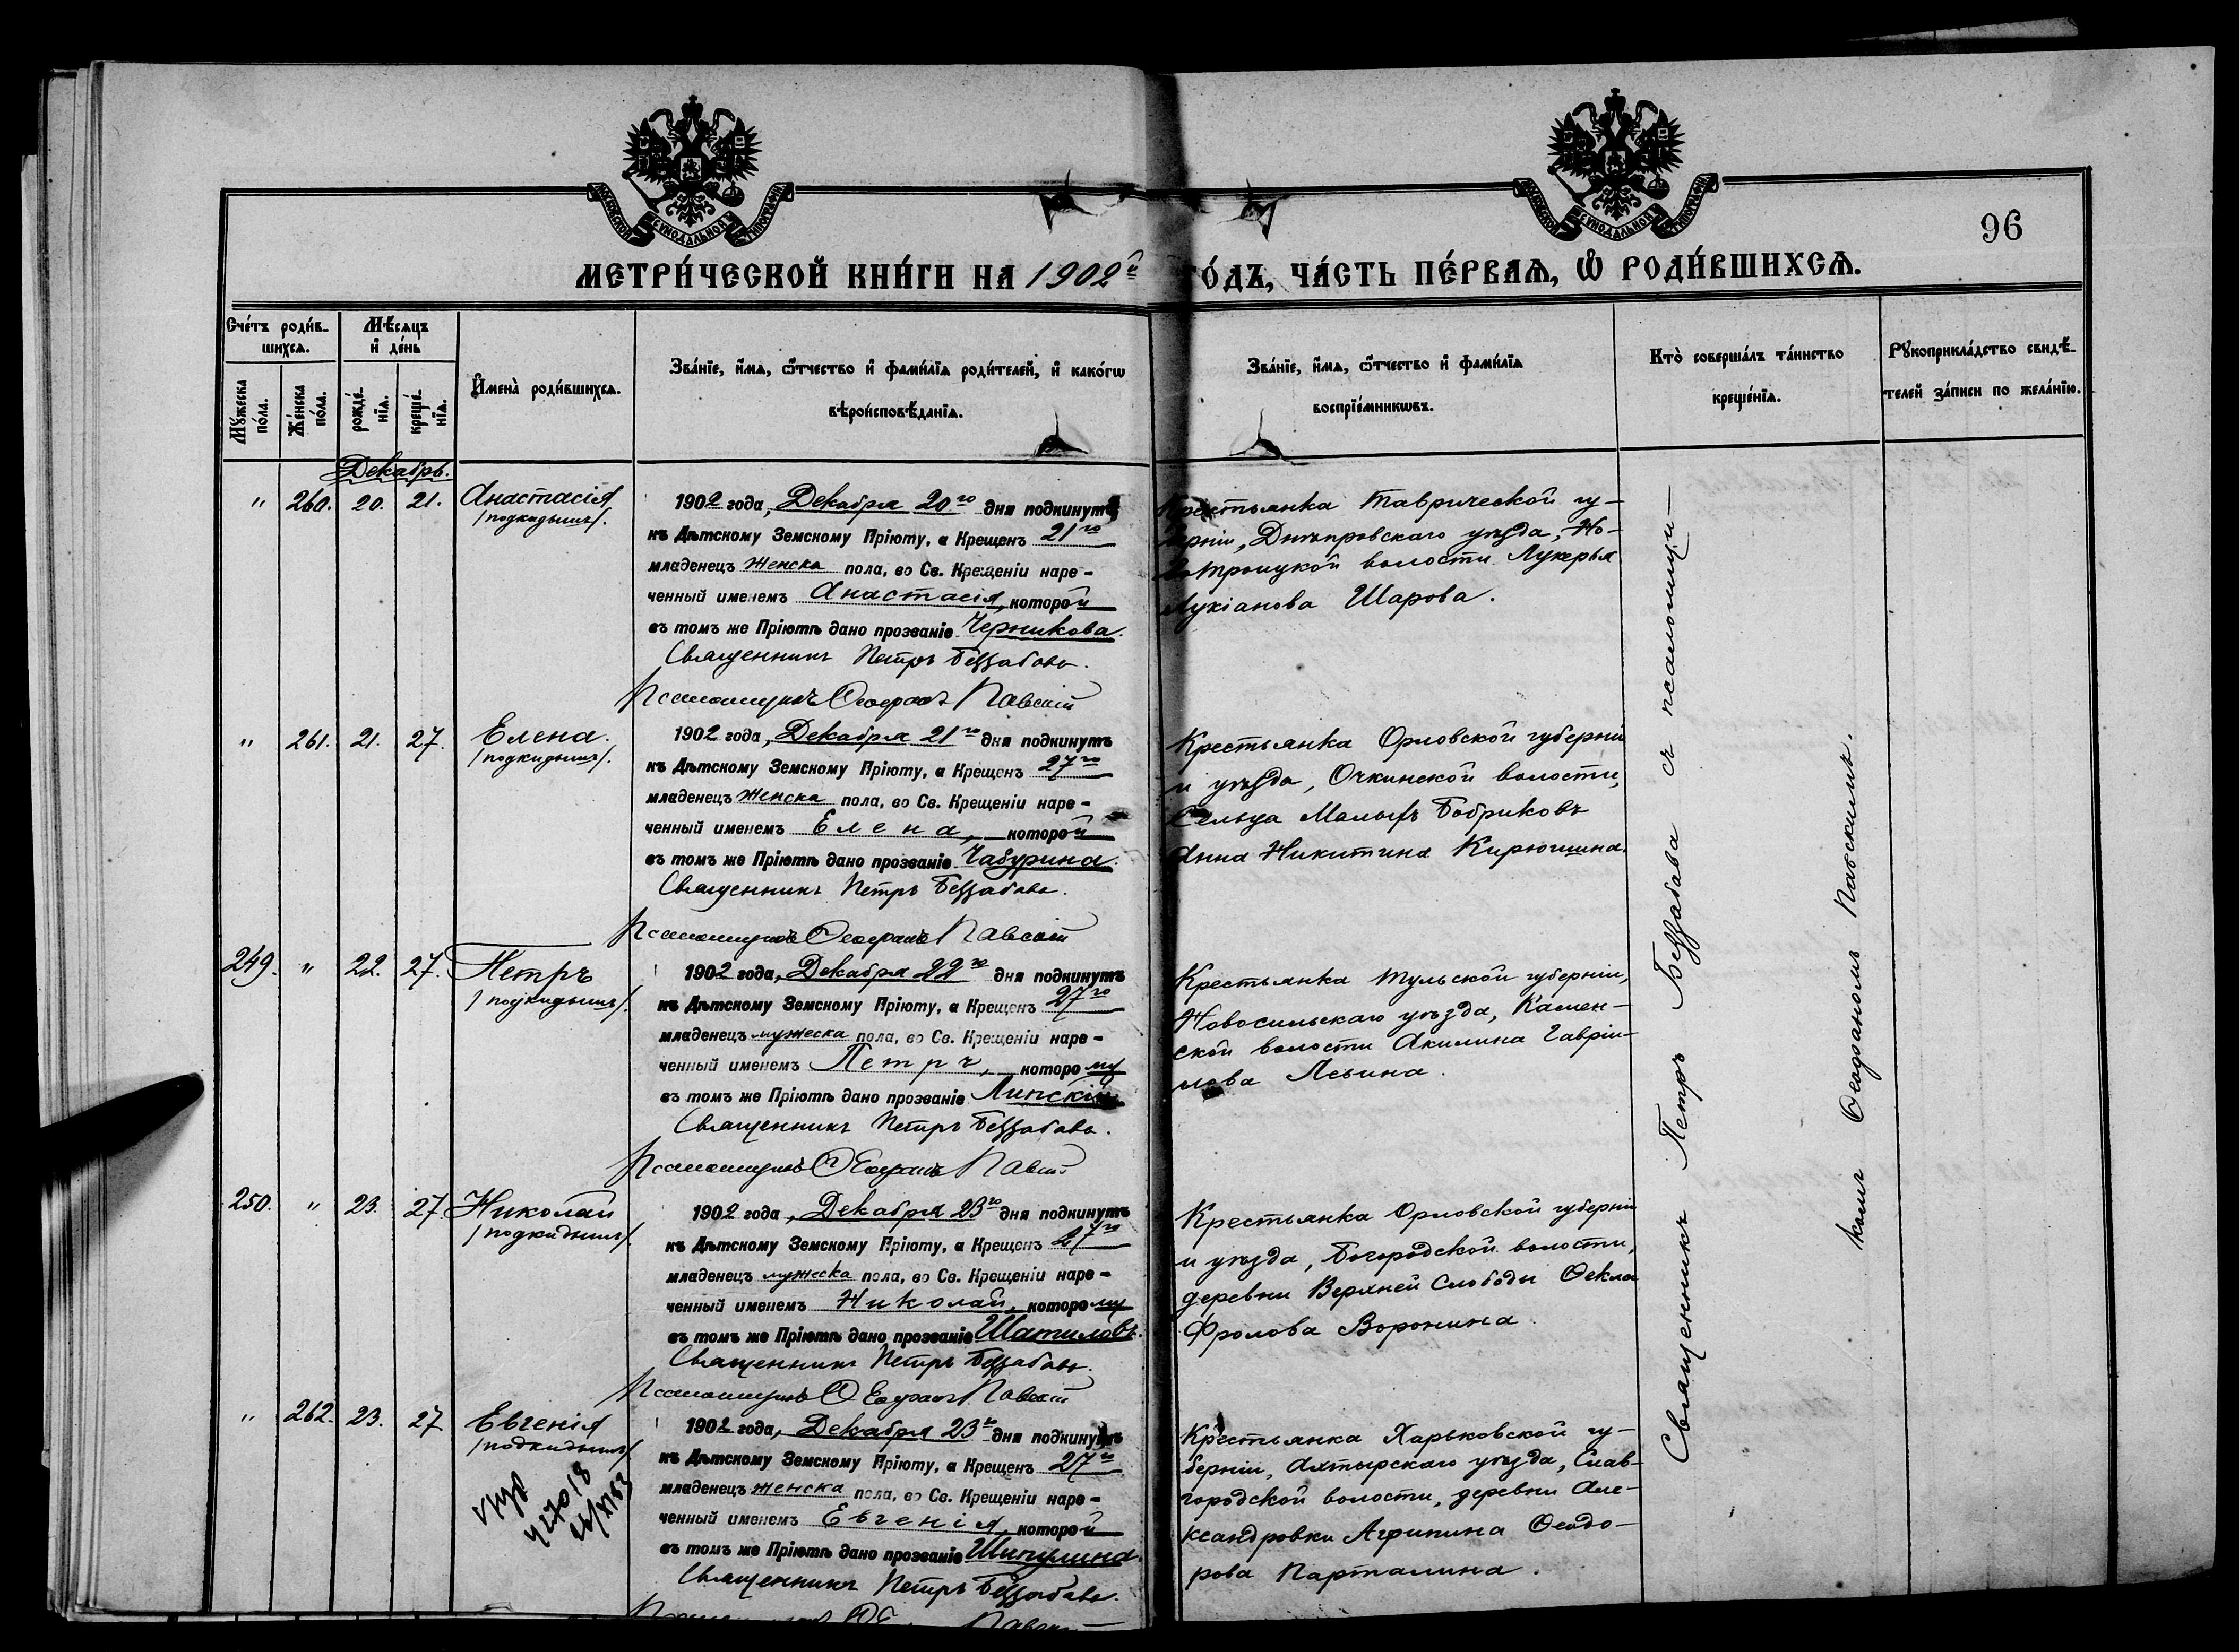 МОСКОВСКОЙ СУНОДАЛЬНОЙ ТИПОГРАФІИ
МОСКОВСКОЙ СУНОДАЛЬНОЙ ТИПОГРАФІИ
96
МЕТРИ́ЧЕСКОЙ КНИ́ГИ НА 1902й ГО́ДЪ, ЧА́СТЬ ПЕ́РВАѦ, Ѡ҆ РОДИ́ВШИХСѦ.
Сче́тъ роди́в-
шихсѧ.
Мѣ́сѧцъ
и҆ де́нь
Мꙋ́жеска
по́ла.
Же́нска
по́ла.
рожде́-
нїѧ.
креще́-
нїѧ.
И҆мена̀ роди́вшихсѧ.
Зва́нїе, и҆́мѧ, ѻ҆́тчество и҆ фами́лїѧ роди́телей, и҆ како́гѡ
вѣроисповѣ́данїѧ.
Зва́нїе, и҆́мѧ, ѻ҆́тчество и҆ фами́лїѧ
воспрїе́мникѡвъ.
Кто̀ соверша́лъ та́инство
креще́нїѧ.
Рꙋкоприкла́дство свидѣ́-
телей за́писи по жела́нїю.
Декабрь.
" 260. 20. 21. Анастасія
/подкидышъ/.
1902 года, Декабря 20го дня подкинутъ
къ Дѣтскому Земскому Пріюту, а Крещенъ 21го
младенецъ женска пола, во Св. Крещеніи наре-
ченный именемъ Анастасія, которой
въ томъ же Пріютѣ дано прозваніе Черникова.
Священникъ Петръ Беззабава.
Псаломщикъ Ѳеофанъ Павскій
Крестьянка Таврической гу-
берніи, Днѣпровскаго уѣзда, Но-
вотроицкой волости Лукерья
Лукіанова Шарова.
" 261. 21. 27. Елена.
/подкидышъ/.
1902 года, Декабря 21го дня подкинутъ
къ Дѣтскому Земскому Пріюту, а Крещенъ 27го
младенецъ женска пола, во Св. Крещеніи наре-
ченный именемъ Елена, которой
въ томъ же Пріютѣ дано прозваніе Чабурина.
Священникъ Петръ Беззабава.
Псаломщикъ Ѳеофанъ Павскій
Крестьянка Орловской губерніи
и уѣзда, Очкинской волости,
Сельца Малыхъ Бобриковъ
Анна Никитина Кирюшина.
249. " 22. 27. Петръ
/подкидышъ/.
1902 года, Декабря 22го дня подкинутъ
къ Дѣтскому Земскому Пріюту, а Крещенъ 27го
младенецъ мужеска пола, во Св. Крещеніи наре-
ченный именемъ Петръ, которому
въ томъ же Пріютѣ дано прозваніе Липскій
Священникъ Петръ Беззабава.
Псаломщикъ Ѳеофанъ Павскій
Крестьянка Тульской губерніи,
Новосильскаго уѣзда, Камен-
ской волости Акилина Гавріи-
лова Левина.
250. " 23. 27. Николай
/подкидышъ/.
1902 года, Декабря 23го дня подкинутъ
къ Дѣтскому Земскому Пріюту, а Крещенъ 27го
младенецъ мужеска пола, во Св. Крещеніи наре-
ченный именемъ Николай, которому
въ томъ же Пріютѣ дано прозваніе Шатиловъ.
Священникъ Петръ Беззабава.
Псаломщикъ Ѳеофанъ Павскій
Крестьянка Орловской губерніи
и уѣзда, Богородской волости,
деревни Верхней Слободы Ѳекла
Фролова Воронина.
" 262. 23. 27 Евгенія
/подкидышъ/
1902 года, Декабря 23го дня подкинутъ
къ Дѣтскому Земскому Пріюту, а Крещенъ 27го
младенецъ женска пола, во Св. Крещеніи наре-
ченный именемъ Евгенія, которой
въ томъ же Пріютѣ дано прозваніе Шипулина.
Священникъ Петръ Беззабава.
Крестьянка Харьковской гу-
берніи, Ахтырскаго уѣзда, Слав-
городской волости, деревни Але-
ксандровки Агрипина Ѳеодо-
рова Парталина.
Священникъ Петръ Беззабава съ псаломщи-
комъ Ѳеофаномъ Павскимъ.